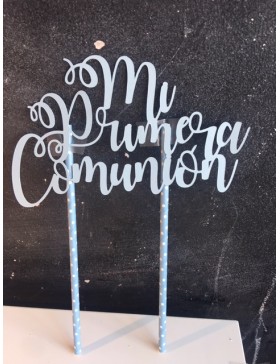 Mi
Primera
Comunión